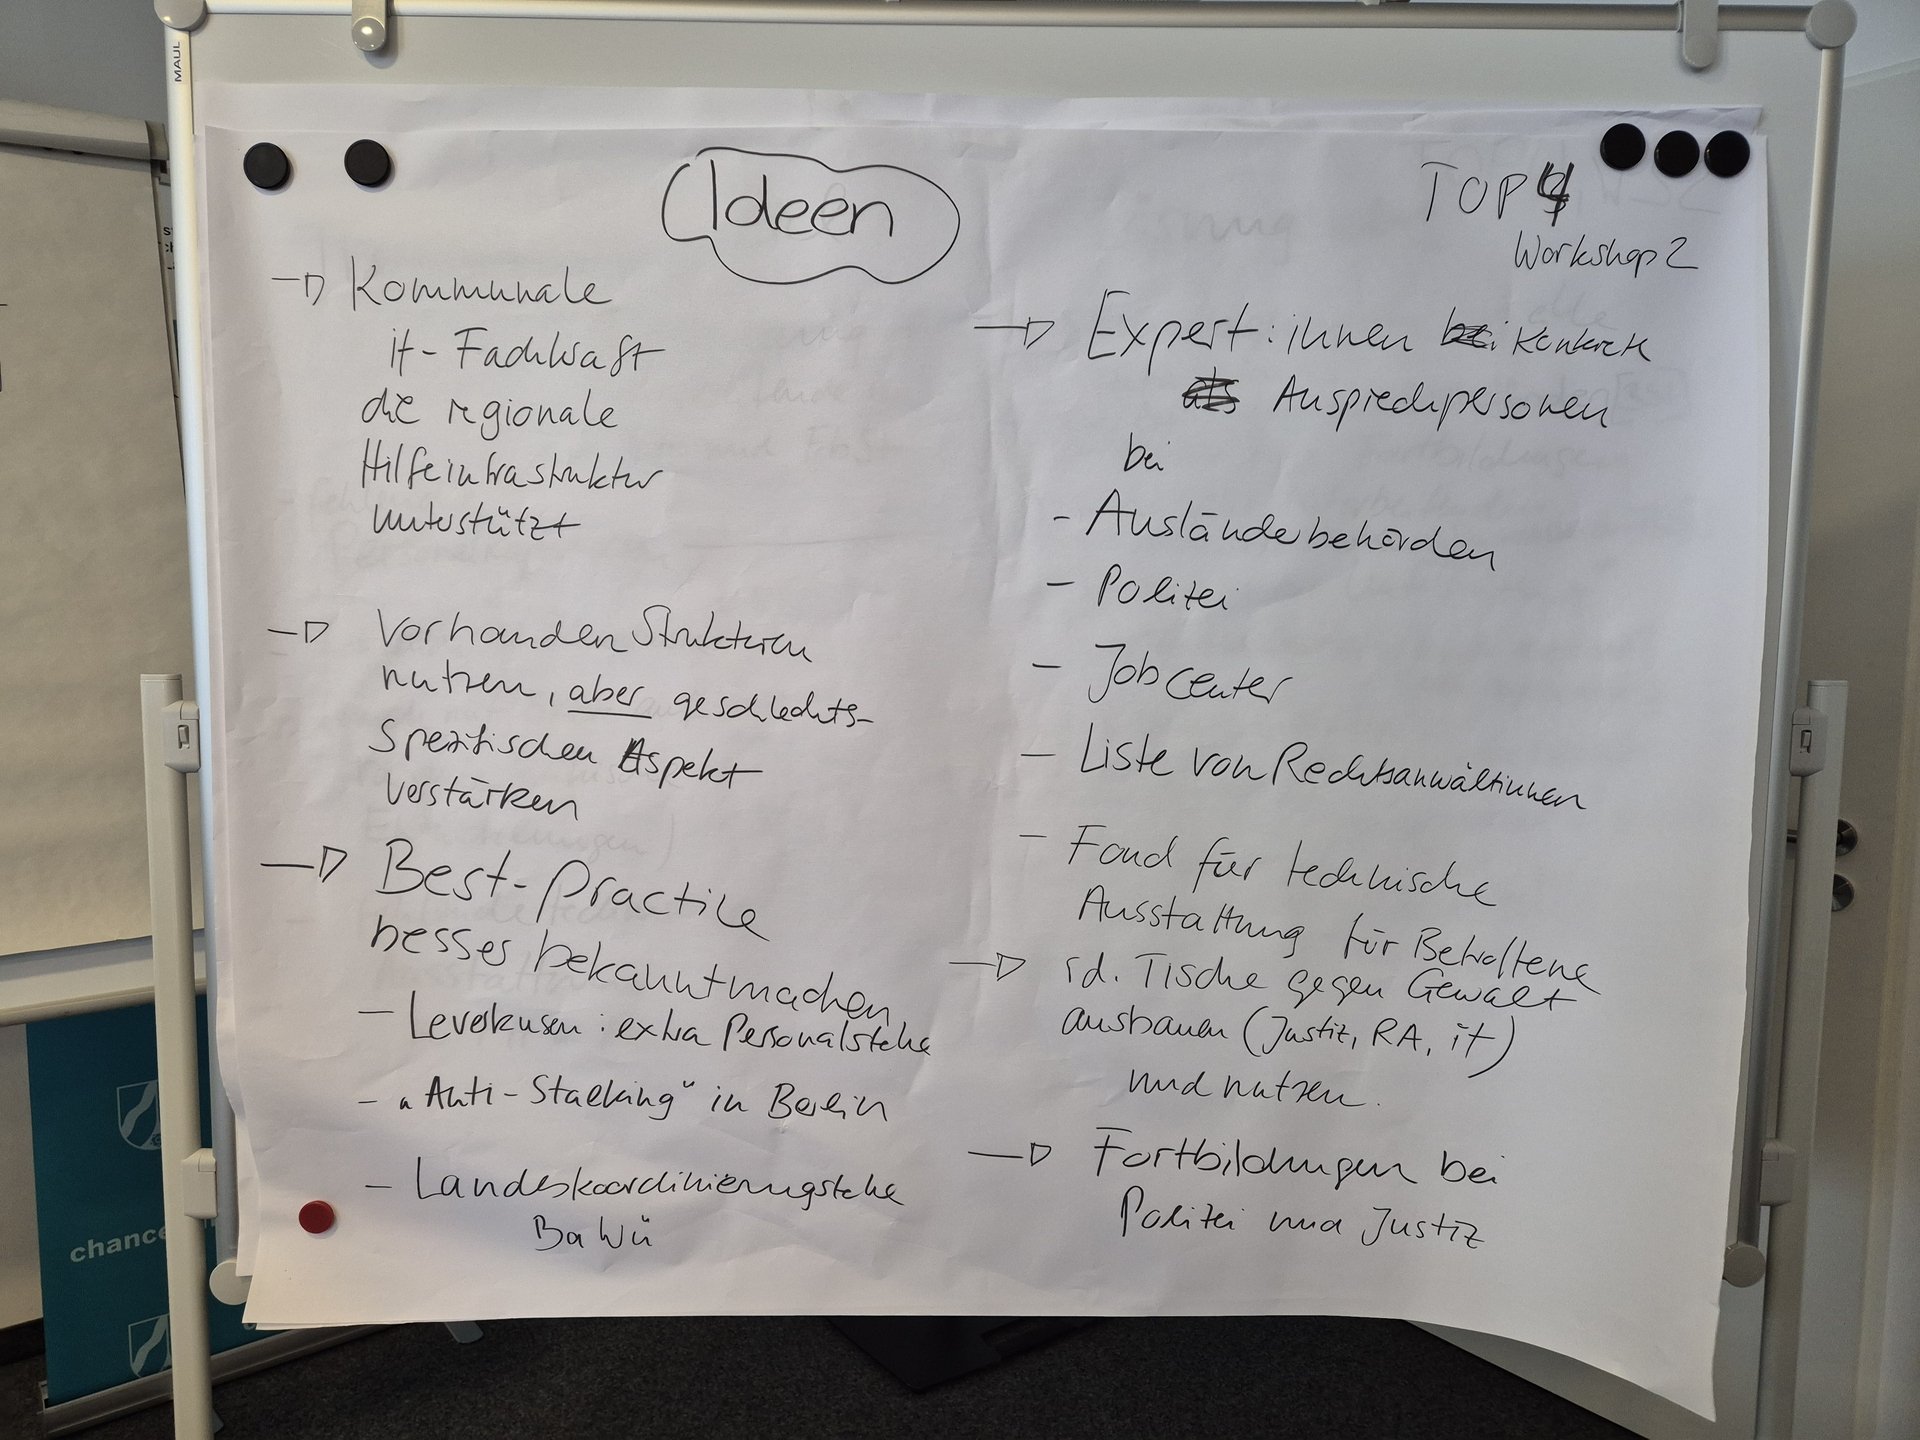 MAUL
Ideen
TOP 4
Workshop 2
→ Kommunale
it-Fachkraft
die regionale
Hilfeinfrastruktur
unterstützt
→ Vorhanden Strukturen
nutzen, aber geschlechts-
spezifischen Aspekt
verstärken
→ Best-Practice
besser bekanntmachen
- Leverkusen: extra Personalstelle
- "Anti-Stalking" in Berlin
- Landeskoordinierungstelle
BaWü
→ Expert:innen konkrete
Ansprechpersonen
bei
- Ausländerbehörden
- Polizei
- Jobcenter
- Liste von Rechtsanwältinnen
- Fond für technische
Ausstattung für Betroffene
→ rd. Tische gegen Gewalt
ausbauen (Justiz, RA, it)
und nutzen.
→ Fortbildungen bei
Polizei und Justiz
chance